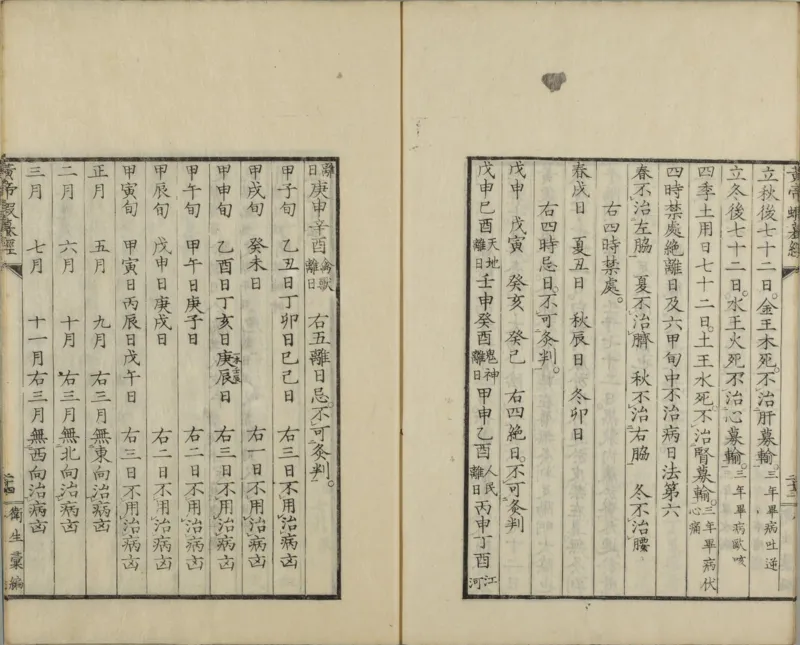 黃帝蝦蟇經
立秋後七十二日金王木死不治肝募輸三年畢病吐逆
立冬後七十二日水王火死不治心募輸三年畢病歐咳
四季土用日七十二日土王水死不治腎募輸三年畢病伏心痛
四時禁處絶離日及六甲旬中不治病日法第六
春不治左脇 夏不治臍 秋不治右脇 冬不治腰
右四時禁處
春戌日 夏丑日 秋辰日 冬卯日
右四時忌日不可灸判
戊申 戊寅 癸亥 癸巳 右四絶日不可灸判
戊申己酉天地離日壬申癸酉鬼神離日甲申乙酉人民離日丙申丁酉江河
離日庚申辛酉禽獸離日 右五離日忌不可灸判
甲子旬 乙丑日丁卯日己巳日 右三日不用治病凶
甲戌旬 癸未日 右一日不用治病凶
甲申旬 乙酉日丁亥日庚辰日 右三日不用治病凶
甲午旬 甲午日庚子日 右二日不用治病凶
甲辰旬 戊申日庚戌日 右二日不用治病凶
甲寅旬 甲寅日丙辰日戊午日 右三日不用治病凶
正月 五月 九月 右三月無東向治病凶
二月 六月 十月 右三月無北向治病凶
三月 七月 十一月右三月無西向治病凶
黃帝蝦蟇經
衛生彙編